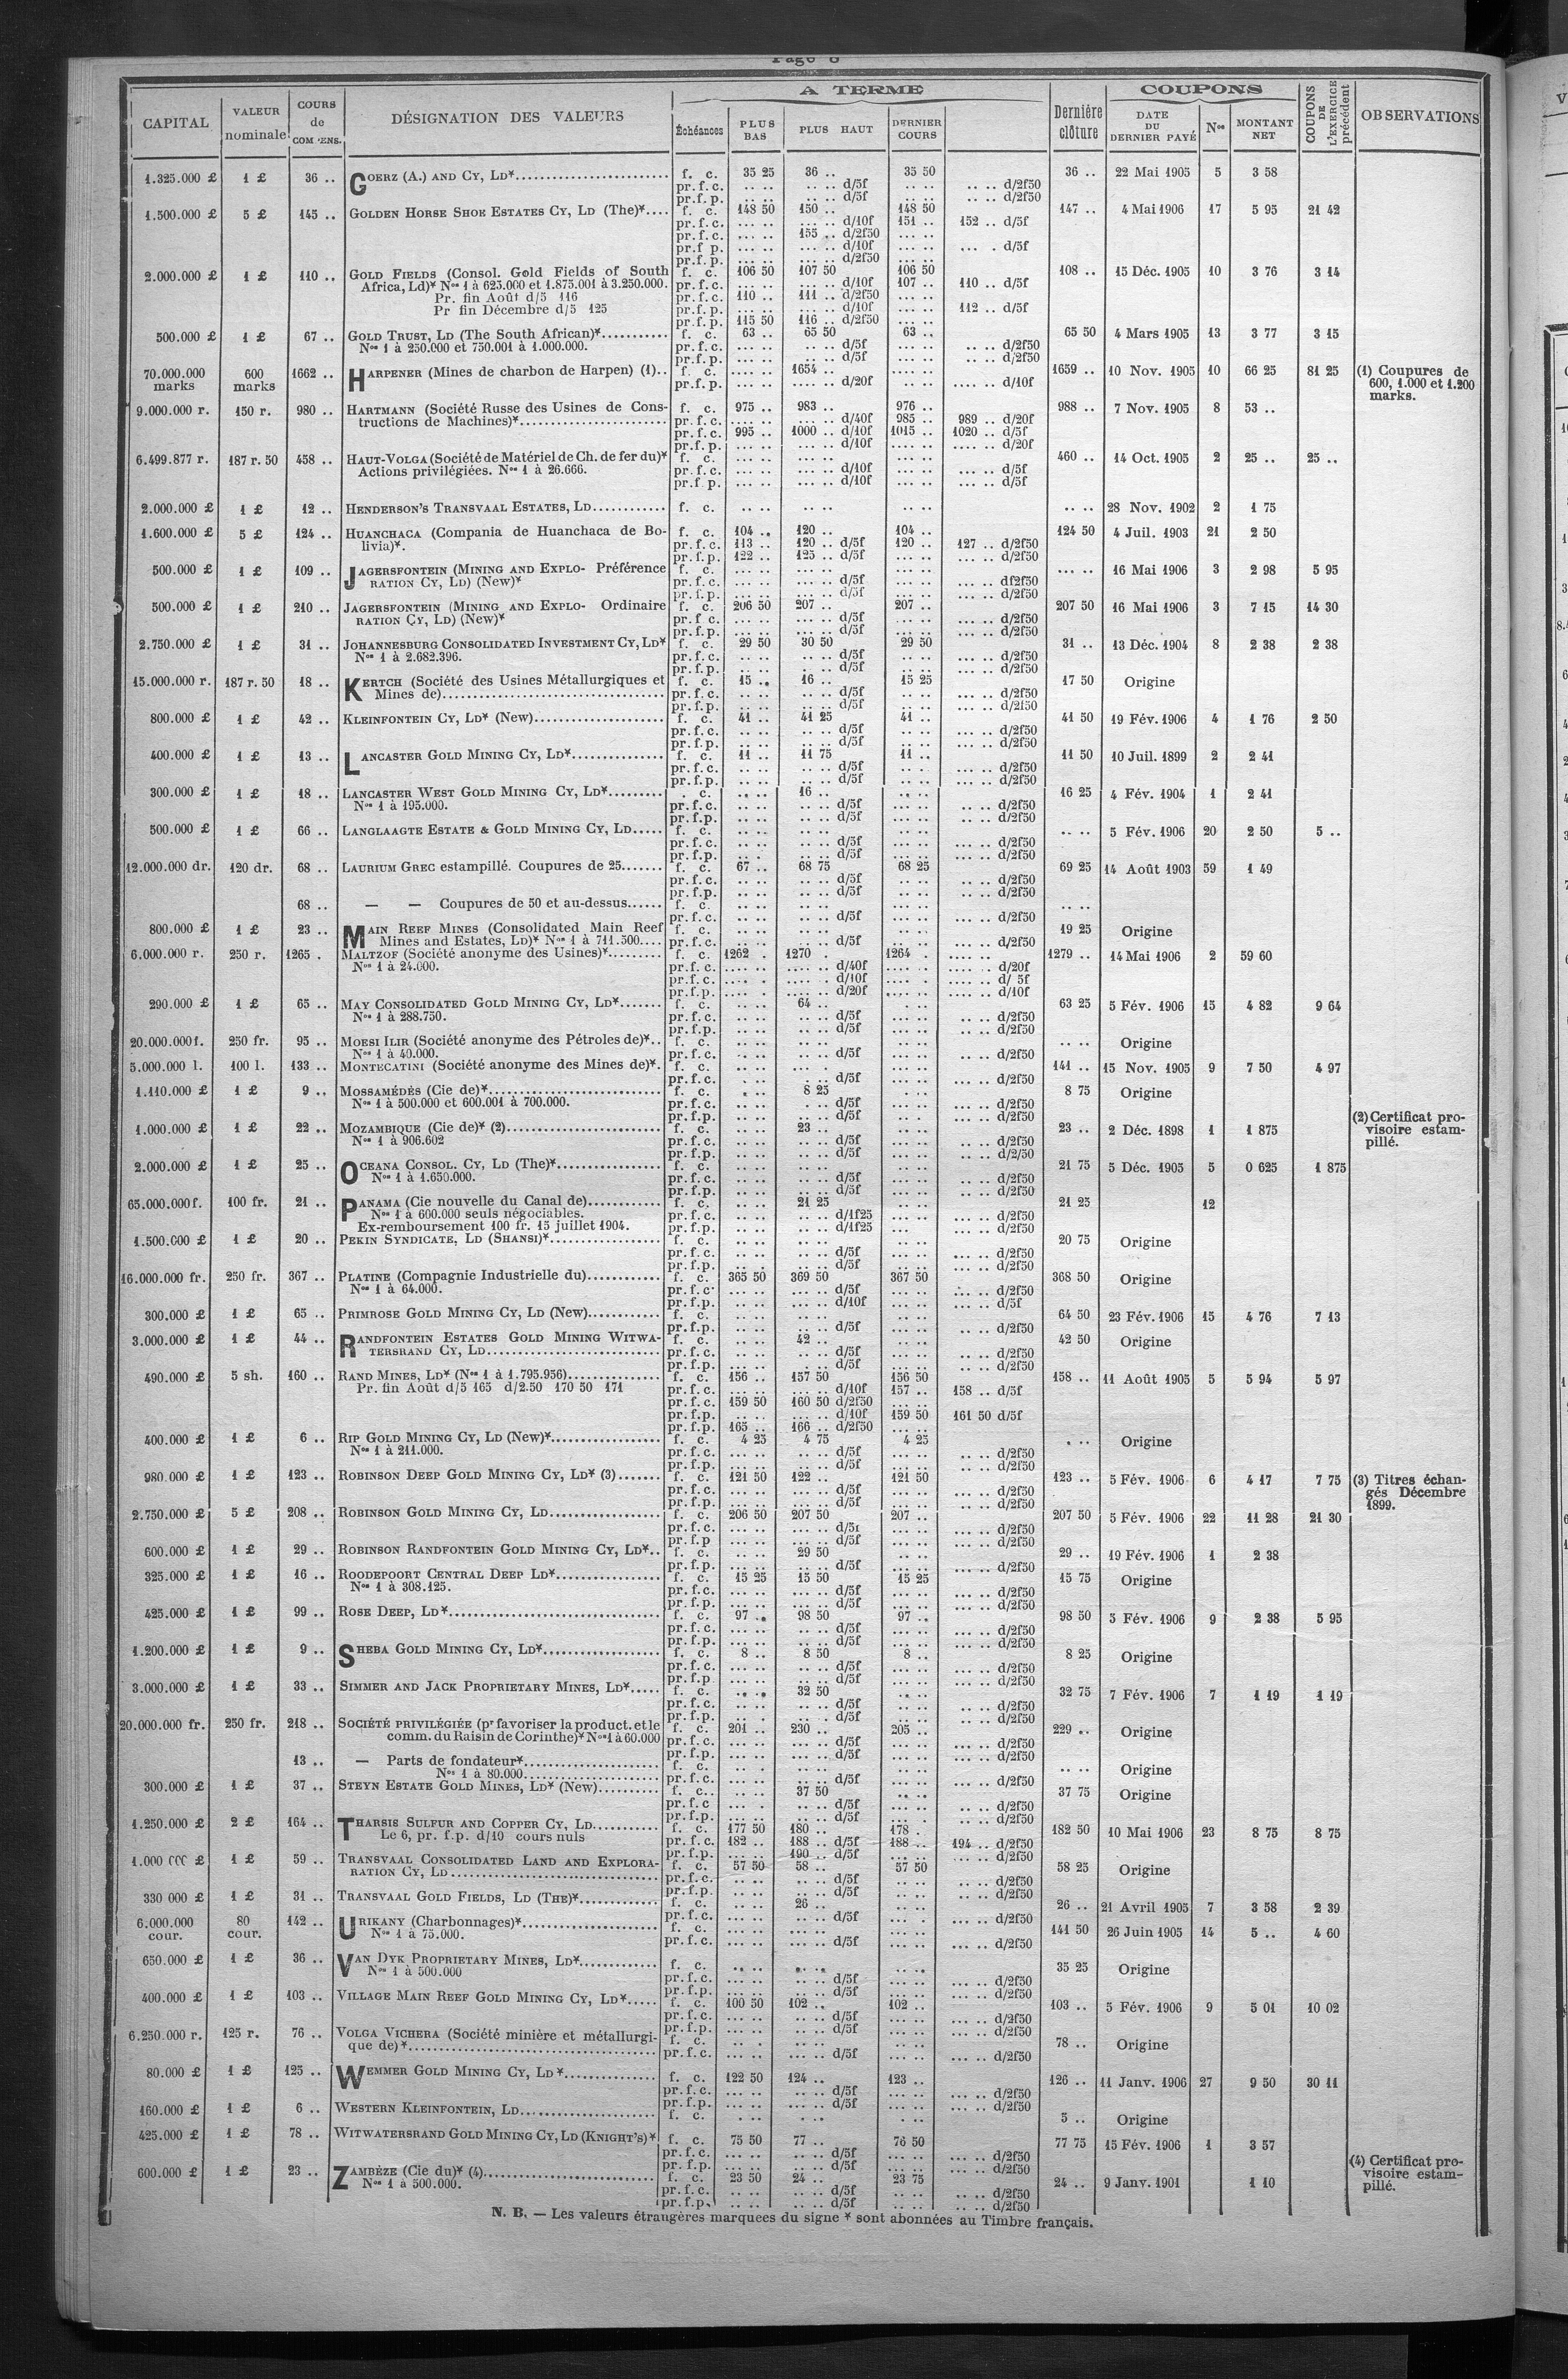 Page 8
CAPITAL | VALEUR nominale | COURS de COMPENS. | DÉSIGNATION DES VALEURS | A TERME | Dernière clôture | COUPONS | COUPONS DE L'EXERCICE précédent | OBSERVATIONS
Échéances | PLUS BAS | PLUS HAUT | DERNIER COURS | DATE DU DERNIER PAYÉ | Nos | MONTANT NET
1.325.000 £ | 1 £ | 36 .. | GOERZ (A.) AND CY, LD* | f. c. | 35 25 | 36 .. | 35 50 | 36 .. | 22 Mai 1905 | 5 | 3 58
pr.f.c. | .. .. | .. .. d/5f | .. .. | .. .. d/2f50
pr.f.p. | .. .. | .. .. d/5f | .. .. | .. .. d/2f50
1.500.000 £ | 5 £ | 145 .. | GOLDEN HORSE SHOE ESTATES CY, LD (The)* | f. c. | 148 50 | 150 .. | 148 50 | 147 .. | 4 Mai 1906 | 17 | 5 95 | 21 42
pr.f.c. | ... .. | ... .. d/10f | 151 .. | 152 .. d/5f
pr.f.c. | ... .. | 155 .. d/2f50 | ... ..
pr.f p. | ... .. | ... .. d/10f | ... .. | ... . d/5f
pr.f.p. | ... .. | ... .. d/2f50 | ... ..
2.000.000 £ | 1 £ | 110 .. | GOLD FIELDS (Consol. Gold Fields of South | f. c. | 106 50 | 107 50 | 106 50 | 108 .. | 15 Déc. 1905 | 10 | 3 76 | 3 14
Africa, Ld)* Nos 1 à 625.000 et 1.875.001 à 3.250.000. | pr.f.c. | ... .. | ... .. d/10f | 107 .. | 110 .. d/5f
Pr. fin Août d/5 116 | pr.f.c. | 110 .. | 111 .. d/2f50 | ... ..
Pr fin Décembre d/5 125 | pr.f.p. | ... .. | ... .. d/10f | ... .. | 112 .. d/5f
pr.f.p. | 115 50 | 116 .. d/2f50 | ... ..
500.000 £ | 1 £ | 67 .. | GOLD TRUST, LD (The South African)* | f. c. | 63 .. | 65 50 | 63 .. | 65 50 | 4 Mars 1905 | 13 | 3 77 | 3 15
Nos 1 à 250.000 et 750.001 à 1.000.000. | pr.f.c. | ... .. | .. .. d/5f | ... .. | .. .. d/2f50
pr.f.p. | ... .. | .. .. d/5f | ... .. | .. .. d/2f50
70.000.000 marks | 600 marks | 1662 .. | HARPENER (Mines de charbon de Harpen) (1).. | f. c. | .... .. | 1654 .. | .... .. | 1659 .. | 10 Nov. 1905 | 10 | 66 25 | 81 25 | (1) Coupures de
pr.f.p. | ... .. | .... .. d/20f | .. .. | .... .. d/10f | 600, 1.000 et 1.200
marks.
9.000.000 r. | 150 r. | 980 .. | HARTMANN (Société Russe des Usines de Cons- | f. c. | 975 .. | 983 .. | 976 .. | 988 .. | 7 Nov. 1905 | 8 | 53 ..
tructions de Machines)* | pr.f.c. | .... .. | ... .. d/40f | 985 .. | 989 .. d/20f
pr.f.c. | 995 .. | 1000 .. d/10f | 1015 .. | 1020 .. d/5f
pr.f.p. | ... .. | ... .. d/10f | .... .. | .... .. d/20f
6.499.877 r. | 187 r. 50 | 458 .. | HAUT-VOLGA (Société de Matériel de Ch. de fer du)* | f. c. | ... .. | ... .. | ... .. | 460 .. | 14 Oct. 1905 | 2 | 25 .. | 25 ..
Actions privilégiées. Nos 1 à 26.666. | pr.f.c. | ... .. | ... .. d/10f | ... .. | ... .. d/5f
pr.f.p. | ... .. | ... .. d/10f | ... .. | ... .. d/5f
2.000.000 £ | 1 £ | 12 .. | HENDERSON'S TRANSVAAL ESTATES, LD | f. c. | .. .. | .. .. | .. .. | .. .. | 28 Nov. 1902 | 2 | 1 75
1.600.000 £ | 5 £ | 124 .. | HUANCHACA (Compania de Huanchaca de Bo- | f. c. | 104 .. | 120 .. | 104 .. | 124 50 | 4 Juil. 1903 | 21 | 2 50
livia)*. | pr.f.c. | 113 .. | 120 .. d/5f | 120 .. | 127 .. d/2f50
pr.f.p. | 122 .. | 125 .. d/5f | ... .. | ... .. d/2f50
500.000 £ | 1 £ | 109 .. | JAGERSFONTEIN (MINING AND EXPLO- Préférence | f. c. | ... .. | ... .. | ... .. | ... .. | 16 Mai 1906 | 3 | 2 98 | 5 95
RATION CY, LD) (New)* | pr.f.c. | ... .. | ... .. d/5f | ... .. | ... .. df2f50
pr.f.p. | ... .. | ... .. d/5f | ... .. | ... .. d/2f50
500.000 £ | 1 £ | 210 .. | JAGERSFONTEIN (MINING AND EXPLO- Ordinaire | f. c. | 206 50 | 207 .. | 207 .. | 207 50 | 16 Mai 1906 | 3 | 7 15 | 14 30
RATION CY, LD) (New)* | pr.f c. | ... .. | ... .. d/5f | ... .. | ... .. d/2f50
pr.f.p. | ... .. | ... .. d/5f | ... .. | ... .. d/2f50
2.750.000 £ | 1 £ | 31 .. | JOHANNESBURG CONSOLIDATED INVESTMENT CY, LD* | f. c. | 29 50 | 30 50 | 29 50 | 31 .. | 13 Déc. 1904 | 8 | 2 38 | 2 38
Nos 1 à 2.682.396. | pr.f.c. | .. .. | .. .. d/5f | .. .. | ... .. d/2f50
pr.f.p. | .. .. | .. .. d/5f | .. .. | ... .. d/2f50
15.000.000 r. | 187 r. 50 | 18 .. | KERTCH (Société des Usines Métallurgiques et | f. c. | 15 .. | 16 .. | 15 25 | 17 50 | Origine
Mines de) | pr.f.c. | .. .. | .. .. d/5f | .. .. | ... .. d/2f50
pr.f.p. | .. .. | .. .. d/5f | .. .. | .. .. d/2f50
800.000 £ | 1 £ | 42 .. | KLEINFONTEIN CY, LD* (New) | f. c. | 41 .. | 41 25 | 41 .. | 41 50 | 19 Fév. 1906 | 4 | 1 76 | 2 50
pr.f.c. | .. .. | .. .. d/5f | .. .. | ... .. d/2f50
pr.f.p. | .. .. | .. .. d/5f | .. .. | ... .. d/2f50
400.000 £ | 1 £ | 13 .. | LANCASTER GOLD MINING CY, LD* | f. c. | 11 .. | 11 75 | 11 .. | 11 50 | 10 Juil. 1899 | 2 | 2 41
pr.f.c. | .. .. | .. .. d/5f | .. .. | ... .. d/2f50
pr.f.p. | .. .. | .. .. d/5f | .. .. | ... .. d/2f50
300.000 £ | 1 £ | 18 .. | LANCASTER WEST GOLD MINING CY, LD* | . c. | .. .. | 16 .. | .. .. | 16 25 | 4 Fév. 1904 | 1 | 2 41
Nos 1 à 195.000. | pr.f.c. | .. .. | .. .. d/5f | ... .. | .. .. d/2f50
pr.f.p. | .. .. | .. .. d/5f | ... .. | .. .. d/2f50
500.000 £ | 1 £ | 66 .. | LANGLAAGTE ESTATE & GOLD MINING CY, LD | f. c. | .. .. | .. .. | .. .. | .. .. | 5 Fév. 1906 | 20 | 2 50 | 5 ..
pr.f.c. | .. .. | .. .. d/5f | ... .. | .. .. d/2f50
pr.f.p. | .. . | .. .. d/5f | ... .. | .. .. d/2f50
12.000.000 dr. | 120 dr. | 68 .. | LAURIUM GREC estampillé. Coupures de 25 | f. c. | 67 .. | 68 75 | 68 25 | 69 25 | 14 Août 1903 | 59 | 1 49
pr.f.c. | .. .. | .. .. d/5f | ... .. | .. .. d/2f50
pr.f.p. | .. .. | .. .. d/5f | ... .. | .. .. d/2f50
68 .. | — — Coupures de 50 et au-dessus | f. c. | .. .. | .. .. | .. .. | .. ..
pr.f.c. | .. .. | .. .. d/5f | ... .. | ... .. d/2f50
800.000 £ | 1 £ | 23 .. | MAIN REEF MINES (Consolidated Main Reef | f. c. | .. .. | .. .. | .. .. | 19 25 | Origine
Mines and Estates, Ld)* Nos 1 à 711.500 | pr.f.c. | .. .. | .. .. d/5f | .. .. | ... .. d/2f50
6.000.000 r. | 250 r. | 1265 . | MALTZOF (Société anonyme des Usines)* | f. c. | 1262 . | 1270 . | 1264 . | 1279 .. | 14 Mai 1906 | 2 | 59 60
Nos 1 à 24.000. | pr.f.c. | .... . | .... .. d/40f | .... . | .... .. d/20f
pr.f.c. | .... . | .... .. d/10f | .... .. | .... .. d/ 5f
pr.f.p. | .... . | .... .. d/20f | .... .. | .... .. d/10f
290.000 £ | 1 £ | 65 .. | MAY CONSOLIDATED GOLD MINING CY, LD* | f. c. | .. .. | 64 .. | . .. | 63 25 | 5 Fév. 1906 | 15 | 4 82 | 9 64
Nos 1 à 288.750. | pr.f.c. | .. .. | .. .. d/5f | ... .. | .. .. d/2f50
pr.f.p. | .. .. | .. .. d/5f | ... .. | .. .. d/2f50
20.000.000f. | 250 fr. | 95 .. | MOESI ILIR (Société anonyme des Pétroles de)* | f. c. | .. .. | .. .. | .. .. | .. .. | Origine
Nos 1 à 40.000. | pr.f.c. | .. .. | .. .. d/5f | ... .. | .. .. d/2f50
5.000.000 l. | 100 l. | 133 .. | MONTECATINI (Société anonyme des Mines de)*. | f. c. | .. .. | ... .. | ... .. | 141 .. | 15 Nov. 1905 | 9 | 7 50 | 4 97
pr.f.c. | . .. | . .. d/5f | ... .. | ... .. d/2f50
1.110.000 £ | 1 £ | 9 .. | MOSSAMÉDÈS (Cie de)* | f. c. | . .. | 8 25 | . .. | 8 75 | Origine
Nos 1 à 500.000 et 600.001 à 700.000. | pr.f.c. | .. .. | . .. d/5f | .. .. | ... .. d/2f50
pr.f.p. | .. .. | .. .. d/5f | . .. | .. .. d/2f50
1.000.000 £ | 1 £ | 22 .. | MOZAMBIQUE (Cie de)* (2) | f. c. | .. .. | 23 .. | .. .. | 23 .. | 2 Déc. 1898 | 1 | 1 875 | (2) Certificat pro-
Nos 1 à 906.602 | pr.f.c. | .. .. | .. .. d/5f | ... .. | ... .. d/2f50 | visoire estam-
pr.f.p. | .. .. | .. .. d/5f | ... .. | ... .. d/2/50 | pillé.
2.000.000 £ | 1 £ | 25 .. | OCEANA CONSOL. CY, LD (The)* | f. c. | .. .. | .. .. | .. .. | 21 75 | 5 Déc. 1905 | 5 | 0 625 | 1 875
Nos 1 à 1.650.000. | pr.f.c. | .. .. | .. .. d/5f | ... .. | ... .. d/2f50
pr.f.p. | .. .. | .. .. d/5f | ... .. | .. .. d/2f50
65.000.000f. | 100 fr. | 21 .. | PANAMA (Cie nouvelle du Canal de) | f. c. | .. .. | 21 25 | .. .. | 21 25 | 12
Nos 1 à 600.000 seuls négociables. | pr.f.c. | .. .. | .. .. d/1f25 | ... .. | ... .. d/2f50
Ex-remboursement 100 fr. 15 juillet 1904. | pr.f.p. | .. .. | .. .. d/1f25 | ... .. | ... .. d/2f50
1.500.000 £ | 1 £ | 20 .. | PEKIN SYNDICATE, LD (SHANSI)* | f. c. | .. .. | .. .. | .. .. | 20 75 | Origine
pr.f.c. | .. .. | .. .. d/5f | .. .. | ... .. d/2f50
pr.f.p. | .. . | .. .. d/5f | .. .. | ... .. d/2f50
16.000.000 fr. | 250 fr. | 367 .. | PLATINE (Compagnie Industrielle du) | f. c. | 365 50 | 369 50 | 367 50 | 368 50 | Origine
Nos 1 à 64.000. | pr.f.c. | ... .. | ... .. d/5f | ... .. | ... .. d/2f50
pr.f.p. | ... .. | ... .. d/10f | ... .. | ... .. d/5f
300.000 £ | 1 £ | 65 .. | PRIMROSE GOLD MINING CY, LD (New) | f. c. | .. .. | .. .. | .. .. | 64 50 | 23 Fév. 1906 | 15 | 4 76 | 7 13
pr.f.p. | .. .. | .. .. d/5f | ... .. | .. .. d/2f50
3.000.000 £ | 1 £ | 44 .. | RANDFONTEIN ESTATES GOLD MINING WITWA- | f. c. | .. .. | 42 .. | .. .. | 42 50 | Origine
TERSRAND CY, LD | pr.f.c. | .. .. | .. .. d/5f | ... .. | .. .. d/2f50
pr.f.p. | ... .. | . .. d/5f | ... .. | .. .. d/2f50
490.000 £ | 5 sh. | 160 .. | RAND MINES, LD* (Nos 1 à 1.795.956) | f. c. | 156 .. | 157 50 | 156 50 | 158 .. | 11 Août 1905 | 5 | 5 94 | 5 97
Pr. fin Août d/5 165 d/2.50 170 50 171 | pr.f.c. | ... .. | ... .. d/10f | 157 .. | 158 .. d/5f
pr.f.c. | 159 50 | 160 50 d/2f50 | ... ..
pr.f.p. | .. .. | ... .. d/10f | 159 50 | 161 50 d/5f
pr.f.p. | 165 .. | 166 .. d/2f50 | ... ..
400.000 £ | 1 £ | 6 .. | RIP GOLD MINING CY, LD (New)* | f. c. | 4 25 | 4 75 | 4 25 | . .. | Origine
Nos 1 à 211.000. | pr.f.c. | ... .. | .. .. d/5f | ... .. | .. .. d/2f50
pr.f.p. | ... .. | .. .. d/5f | ... .. | .. .. d/2f50
980.000 £ | 1 £ | 123 .. | ROBINSON DEEP GOLD MINING CY, LD* (3) | f. c. | 121 50 | 122 .. | 121 50 | 123 .. | 5 Fév. 1906 | 6 | 4 17 | 7 75 | (3) Titres échan-
pr.f.c. | ... .. | ... .. d/5f | ... .. | ... .. d/2f50 | gés Décembre
pr.f.p. | ... .. | ... .. d/5f | ... .. | ... .. d/2f50 | 1899.
2.750.000 £ | 5 £ | 208 .. | ROBINSON GOLD MINING CY, LD | f. c. | 206 50 | 207 50 | 207 .. | 207 50 | 5 Fév. 1906 | 22 | 11 28 | 21 30
pr.f.c. | ... .. | ... .. d/5f | ... .. | ... .. d/2f50
pr.f.p | ... .. | ... .. d/5f | ... .. | ... .. d/2f50
600.000 £ | 1 £ | 29 .. | ROBINSON RANDFONTEIN GOLD MINING CY, LD* | f. c. | .. .. | 29 50 | .. .. | 29 .. | 19 Fév. 1906 | 1 | 2 38
pr.f.p. | .. .. | .. .. d/5f | .. .. | ... .. d/2f50
325.000 £ | 1 £ | 16 .. | ROODEPOORT CENTRAL DEEP LD* | f. c. | 15 25 | 15 50 | 15 25 | 15 75 | Origine
Nos 1 à 308.125. | pr.f.c. | ... .. | ... .. d/5f | ... .. | ... .. d/2f50
pr.f.p. | ... .. | ... .. d/5f | ... .. | ... .. d/2f50
425.000 £ | 1 £ | 99 .. | ROSE DEEP, LD* | f. c. | 97 .. | 98 50 | 97 .. | 98 50 | 5 Fév. 1906 | 9 | 2 38 | 5 95
pr.f.c. | ... .. | .. .. d/5f | ... .. | ... .. d/2f50
pr.f.p. | ... .. | .. .. d/5f | ... .. | ... .. d/2f50
1.200.000 £ | 1 £ | 9 .. | SHEBA GOLD MINING CY, LD* | f. c. | 8 .. | 8 50 | 8 .. | 8 25 | Origine
pr.f.c. | ... .. | .. .. d/5f | ... .. | ... .. d/2f50
pr.f.p | ... .. | .. .. d/5f | ... .. | ... .. d/2f50
3.000.000 £ | 1 £ | 33 .. | SIMMER AND JACK PROPRIETARY MINES, LD* | f. c. | .. .. | 32 50 | .. .. | 32 75 | 7 Fév. 1906 | 7 | 1 19 | 1 19
pr.f.c. | .. .. | .. .. d/5f | ... .. | .. .. d/2f50
pr.f.p. | .. . | .. . d/5f | ... .. | .. .. d/2f50
20.000.000 fr. | 250 fr. | 218 .. | SOCIÉTÉ PRIVILÉGIÉE (pr favoriser la product. et le | f. c. | 201 .. | 230 .. | 205 .. | 229 .. | Origine
comm. du Raisin de Corinthe)* Nos 1 à 60.000 | pr.f.c. | ... .. | ... .. d/5f | ... .. | ... .. d/2f50
pr.f.p. | ... .. | ... .. d/5f | ... .. | ... .. d/2f50
13 .. | — Parts de fondateur* | f. c. | .. . | .. . | .. .. | .. .. | Origine
Nos 1 à 80.000 | pr.f.c. | ... .. | .. .. d/5f | ... .. | ... .. d/2f50
300.000 £ | 1 £ | 37 .. | STEYN ESTATE GOLD MINES, LD* (New) | f. c. | .. .. | 37 50 | .. .. | 37 75 | Origine
pr.f.c | ... . | .. .. d/5f | ... .. | .. .. d/2f50
pr.f.p. | ... .. | .. .. d/5f | ... .. | .. .. d/2f50
1.250.000 £ | 2 £ | 164 .. | THARSIS SULFUR AND COPPER CY, LD | f. c. | 177 50 | 180 .. | 178 . | 182 50 | 10 Mai 1906 | 23 | 8 75 | 8 75
Le 6, pr. f.p. d/10 cours nuls | pr.f.c. | 182 .. | 188 .. d/5f | 188 .. | 194 .. d/2f50
pr.f.p. | ... .. | 190 .. d/5f | ... .. | ... .. d/2f50
1.000 000 £ | 1 £ | 59 .. | TRANSVAAL CONSOLIDATED LAND AND EXPLORA- | f. c. | 57 50 | 58 .. | 57 50 | 58 25 | Origine
RATION CY, LD | pr.f.c. | .. .. | .. .. d/5f | .. .. | .. .. d/2f50
pr.f.p. | .. .. | .. .. d/5f | .. .. | .. .. d/2f50
330 000 £ | 1 £ | 31 .. | TRANSVAAL GOLD FIELDS, LD (THE)* | f. c. | .. .. | 26 .. | .. .. | 26 .. | 21 Avril 1905 | 7 | 3 58 | 2 39
pr.f.c. | ... .. | .. .. d/5f | ... . | ... .. d/2f50
6.000.000 cour. | 80 cour. | 142 .. | URIKANY (Charbonnages)* | f. c. | ... .. | ... .. | ... .. | 141 50 | 26 Juin 1905 | 14 | 5 .. | 4 60
Nos 1 à 75.000. | pr.f.c. | ... .. | ... .. d/5f | ... .. | ... .. d/2f50
650.000 £ | 1 £ | 36 .. | VAN DYK PROPRIETARY MINES, LD* | f. c. | .. .. | .. .. | .. .. | 35 25 | Origine
Nos 1 à 500.000 | pr.f.c. | ... .. | .. .. d/5f | ... .. | ... .. d/2f50
pr.f.p. | ... .. | .. .. d/5f | ... .. | ... .. d/2f50
400.000 £ | 1 £ | 103 .. | VILLAGE MAIN REEF GOLD MINING CY, LD* | f. c. | 100 50 | 102 .. | 102 .. | 103 .. | 5 Fév. 1906 | 9 | 5 01 | 10 02
pr.f.c. | ... .. | .. .. d/5f | ... .. | ... .. d/2f50
pr.f.p. | .. .. | .. .. d/5f | ... .. | ... .. d/2f50
6.250.000 r. | 125 r. | 76 .. | VOLGA VICHERA (Société minière et métallurgi- | f. c. | .. . | .. .. | .. .. | 78 .. | Origine
que de)* | pr.f.c. | ... .. | ... .. d/5f | ... .. | ... .. d/2f50
80.000 £ | 1 £ | 125 .. | WEMMER GOLD MINING CY, LD* | f. c. | 122 50 | 124 .. | 123 .. | 126 .. | 11 Janv. 1906 | 27 | 9 50 | 30 11
pr.f.c. | ... .. | ... .. d/5f | ... .. | ... .. d/2f50
pr.f.p. | ... .. | ... .. d/5f | ... .. | ... .. d/2f50
160.000 £ | 1 £ | 6 .. | WESTERN KLEINFONTEIN, LD | f. c. | . .. | . .. | . .. | 5 .. | Origine
425.000 £ | 1 £ | 78 .. | WITWATERSRAND GOLD MINING CY, LD (KNIGHT'S)* | f. c. | 75 50 | 77 .. | 76 50 | 77 75 | 15 Fév. 1906 | 1 | 3 57
pr.f.c. | ... .. | ... .. d/5f | ... .. | ... .. d/2f50
pr.f.p. | ... .. | ... .. d/5f | ... .. | ... .. d/2f50
600.000 £ | 1 £ | 23 .. | ZAMBÈZE (Cie du)* (4) | f. c. | 23 50 | 24 .. | 23 75 | 24 .. | 9 Janv. 1901 | 1 10 | (4) Certificat pro-
Nos 1 à 500.000. | pr.f.c. | .. .. | .. .. d/5f | .. .. | .. .. d/2f50 | visoire estam-
pr.f.p. | .. .. | .. .. d/5f | .. .. | .. .. d/2f50 | pillé.
N. B. — Les valeurs étrangères marquees du signe * sont abonnées au Timbre français.